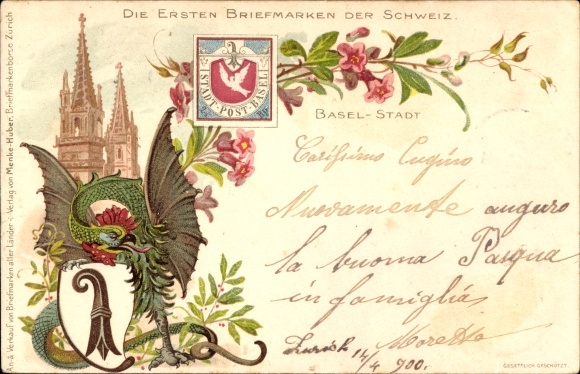 DIE ERSTEN BRIEFMARKEN DER SCHWEIZ.
STADT-POST-BASEL
BASEL-STADT
Carissimo Cugino
Nuovamente auguro
la buoma Pasqua
in famiglia
Zurich 14/4 900. Moretto
An- & Verkauf von Briefmarken aller Länder < Verlag von Menke-Huber, Briefmarkenbörse Zürich
GESETZLICH GESCHÜTZT.